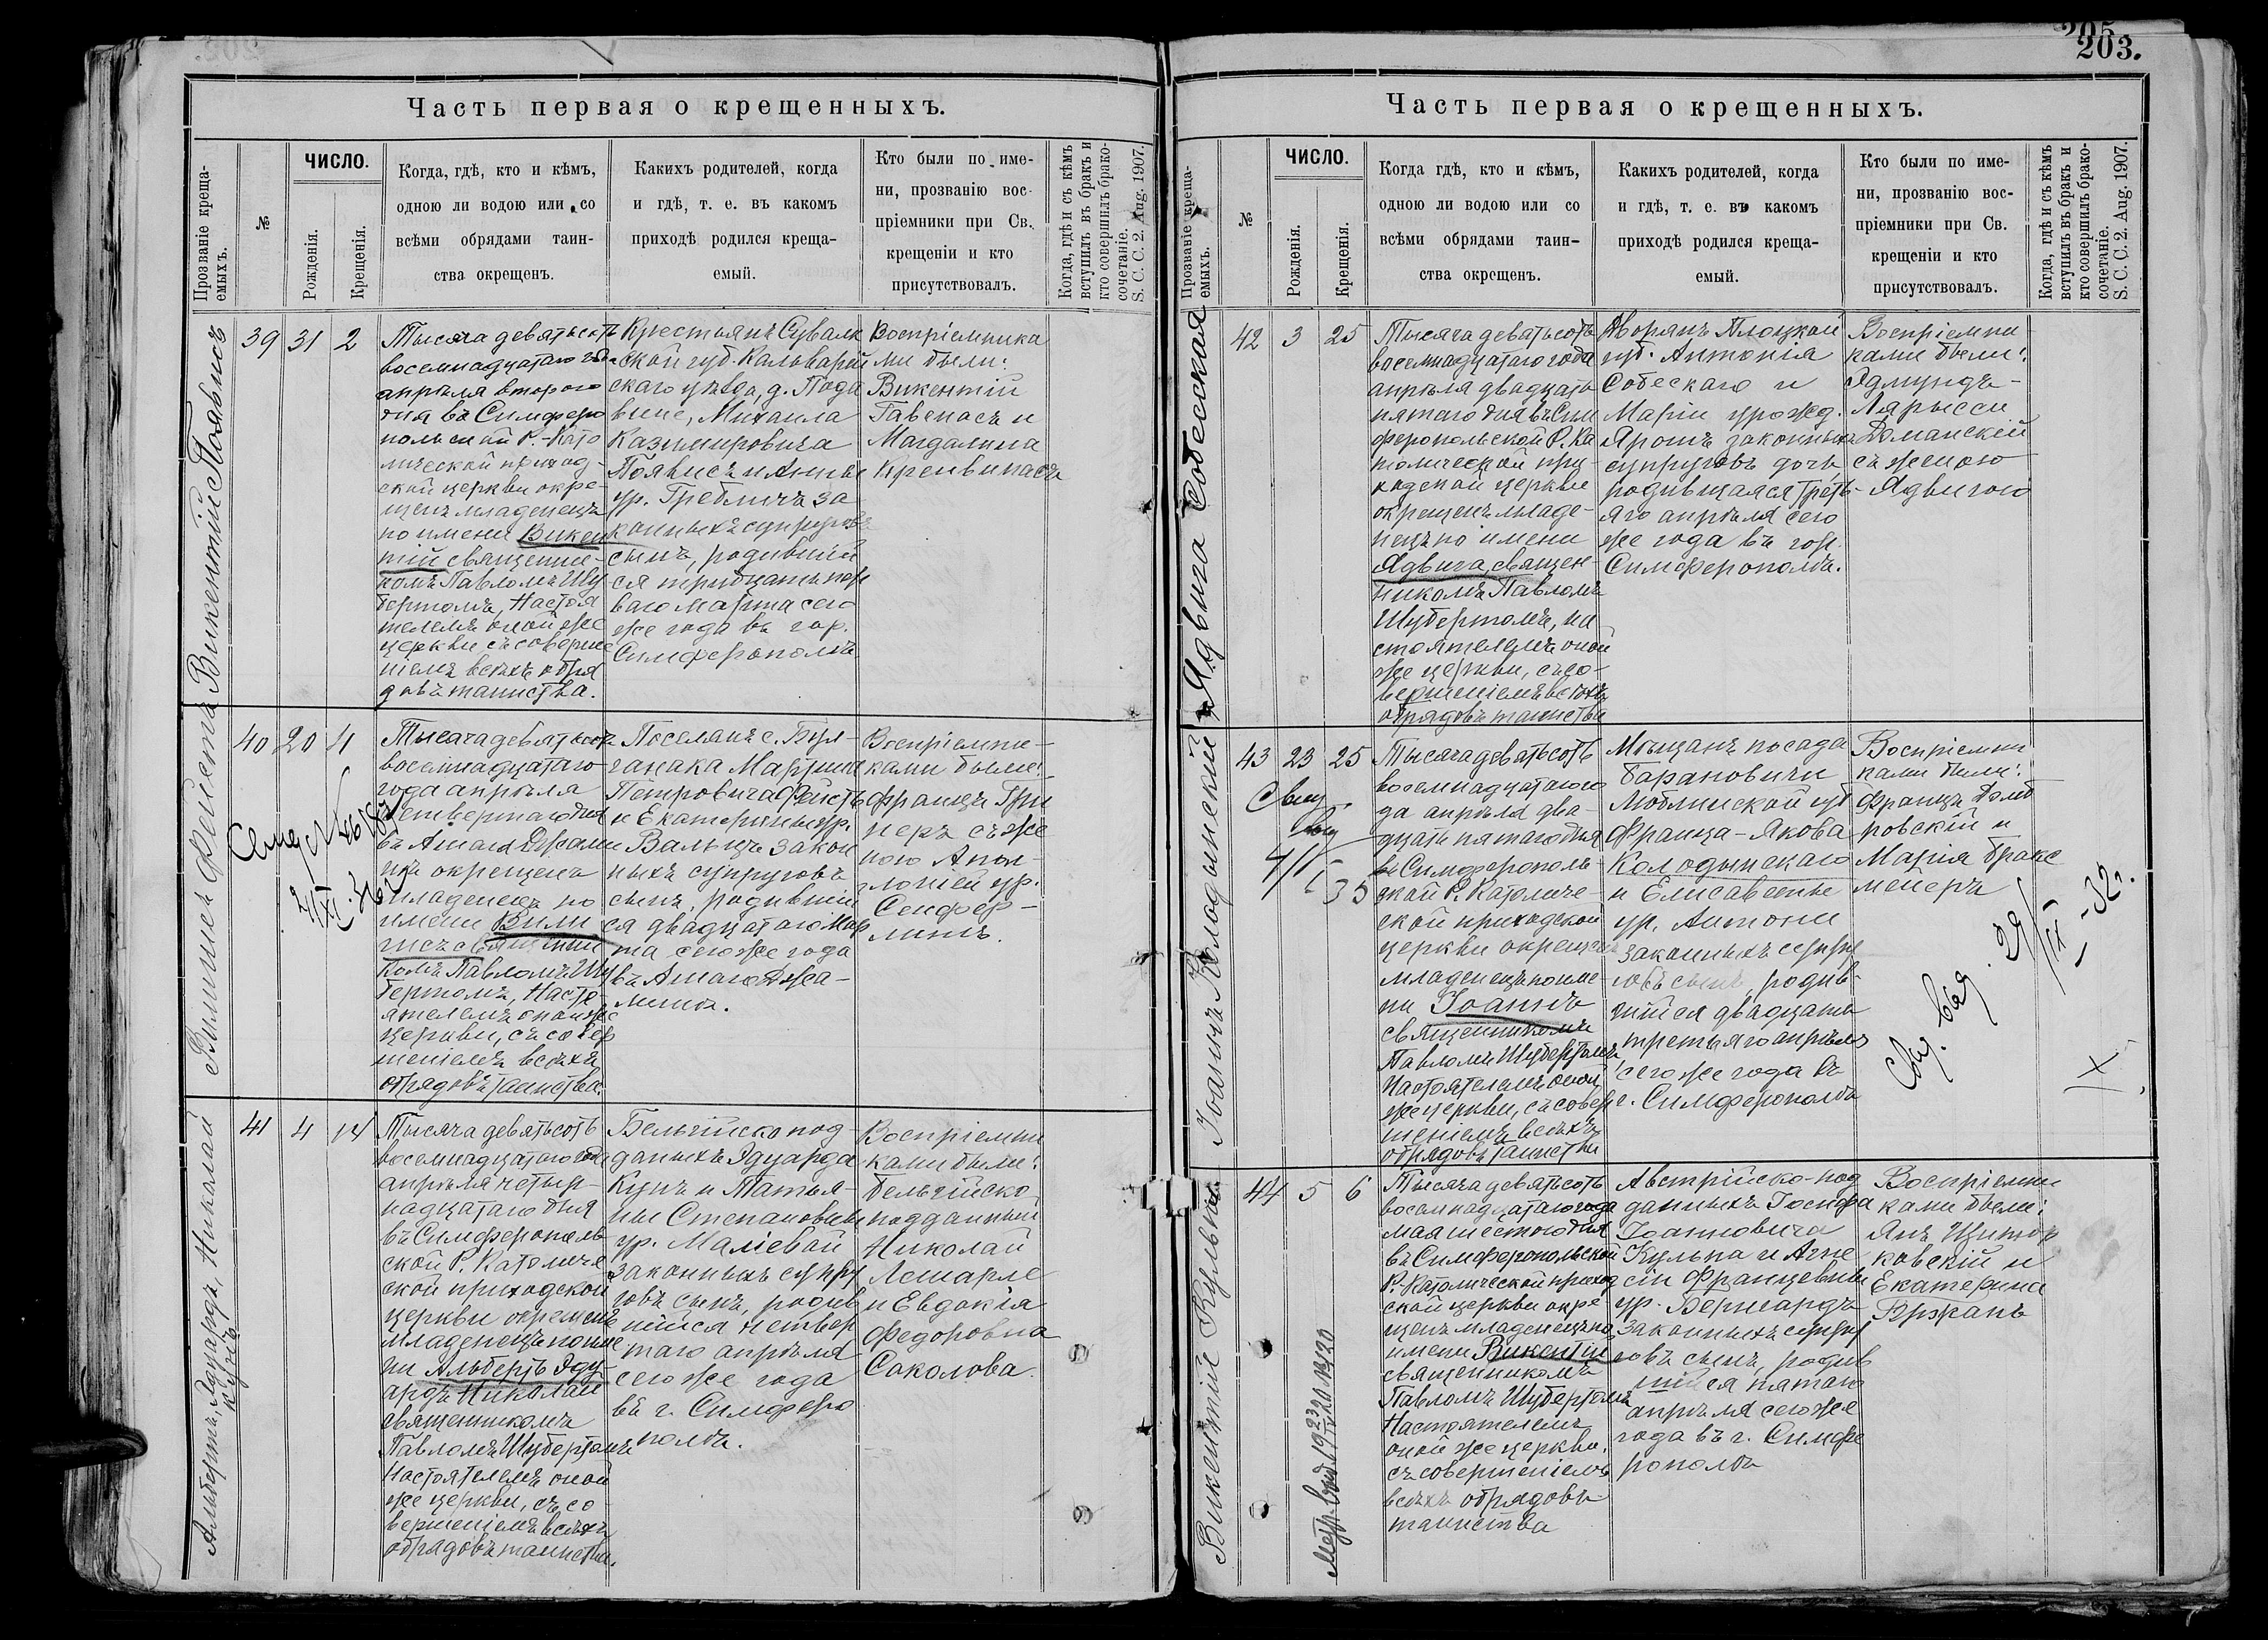 205
203.
Часть первая о крещенныхъ.
Прозваніе креща-
емыхъ.
№
ЧИСЛО.
Рожденія.
Крещенія.
Когда, гдѣ, кто и кѣмъ,
одною ли водою или со
всѣми обрядами таин-
ства окрещенъ.
Какихъ родителей, когда
и гдѣ, т. е. въ какомъ
приходѣ родился креща-
емый.
Кто были по име-
ни, прозванію вос-
пріемники при Св.
крещеніи и кто
присутствовалъ.
Когда, гдѣ и съ кѣмъ
вступилъ въ бракъ и
кто совершилъ брако-
сочетаніе.
S. C. C. 2. Aug. 1907.
Викентій Появисъ
39
31
2
Тысяча девятьсотъ
восемнадцатаго года
апрѣля второго
дня въ Симферо
польской Р.-Като
лической приход-
ской церкви окре-
щенъ младенецъ
по имени Викен
тій священни-
комъ Павломъ Шу
бертомъ, Настоя
телемъ оной же
церкви съ соверше
ніемъ всѣхъ обря
довъ таинства.
Крестьянъ Сувалк
ской губ. Кальварій
скаго уѣзда, д. Пода
выне, Михаила
Казимировича
Появисъ и Анны
ур. Гребличъ за
конныхъ супруговъ
сынъ, родившій
ся тридцать пер
ваго марта сего
же года въ гор.
Симферополѣ
Воспріемника
ми были:
Викентій
Гавенасъ и
Магдалина
Кренвинасъ
40
20
4
Тысяча девятьсотъ
восемнадцатаго
года апрѣля
четвертаго дня
окрещенъ
младенецъ по
имени Вили
священни
комъ Павломъ Шу
бертомъ, Насто-
ятелемъ оной же
церкви, съ совер
шеніемъ всѣхъ
обрядовъ таинства.
Поселянъ с. Бул-
ганака Мартина
Петровича Фейстъ
и Екатерины ур.
Вальцъ закон
ныхъ супруговъ
сынъ, родившій
ся двадцатаго мар
та сего же года
Воспріемни-
ками были:
Францъ Гри
неръ съ же
ною Апол-
лоніей ур.
Альбертъ, Эдуардъ, Николай
Кунъ
41
4
14
Тысяча девятьсотъ
восемнадцатаго года
апрѣля четыр-
надцатаго дня
въ Симферополь
ской Р. Католиче
ской приходской
церкви окрещенъ
младенецъ по име
ни Альбертъ Эду-
ардъ Николай
священникомъ
Павломъ Шубертомъ
Настоятелемъ оной
же церкви, съ со-
вершеніемъ всѣхъ
обрядовъ таинства.
Бельгійско под-
данныхъ Эдуарда
Кунъ и Татья-
ны Степановны
ур. Маліевой
законныхъ супру
говъ сынъ, родив
шійся четвер
таго апрѣля
сего же года
въ г. Симферо
полѣ.
Воспріемни
ками были:
Бельгійско
подданный
Николай
Лешарле
и Евдокія
Федоровна
Соколова.
Часть первая о крещенныхъ.
Прозваніе креща-
емыхъ.
№
ЧИСЛО.
Рожденія.
Крещенія.
Когда гдѣ, кто и кѣмъ,
одною ли водою или со
всѣми обрядами таин-
ства окрещенъ.
Какихъ родителей, когда
и гдѣ, т. е. въ какомъ
приходѣ родился креща-
емый.
Кто были по име-
ни, прозванію вос-
пріемники при Св.
крещеніи и кто
присутствовалъ.
Когда, гдѣ и съ кѣмъ
вступилъ въ бракъ и
кто совершилъ брако-
сочетаніе.
S. C. C. 2. Aug. 1907.
Ядвига Собеская
42
3
25
Тысяча девятьсотъ
восемнадцатаго года
апрѣля двадцать
пятаго дня въ Сим
феропольской Р. Ка
толической при-
ходской церкви
окрещенъ младе-
нецъ по имени
Ядвига, священ-
никомъ Павломъ
Шубертомъ, на
стоятелемъ оной
же церкви, съ со-
вершеніемъ всѣхъ
обрядовъ таинства
Дворянъ Плоцкой
губ. Антонія
Собескаго и
Маріи урожд.
Ярошъ законныхъ
супруговъ дочь,
родившаяся треть-
яго апрѣля сего
же года въ гор.
Симферополѣ.
Воспріемни-
ками были:
Эдмундъ-
Лярысси
Доманскій
съ женою
Ядвигою
Іоаннъ Колодынскій
43
23
25
Тысяча девятьсотъ
восемнадцатаго го
да апрѣля два-
дцать пятаго дня
въ Симферополь-
ской Р. Католиче-
ской приходской
церкви окрещенъ
младенецъ по име-
ни Іоаннъ
священникомъ
Павломъ Шубертомъ,
Настоятелемъ оной
же церкви, съ совер
шеніемъ всѣхъ
обрядовъ таинства
Мѣщанъ посада
Барановичи
Люблинской губ
Франца-Якова
Колодынскаго
и Елисаветы
ур. Антони
законныхъ супру
говъ сынъ, родив-
шійся двадцать
третьяго апрѣля
сего же года въ
г. Симферополѣ
Воспріемни
ками были:
Францъ Домб
ровскій и
Марія Бракс
мейеръ
Викентій Кульпа
44
5
6
Тысяча девятьсотъ
восемнадцатаго года
мая шестого дня
въ Симферопольской
Р. Католической приход
ской церкви окре
щенъ младенецъ по
имени Викентій
священникомъ
Павломъ Шубертомъ
Настоятелемъ
оной же церкви,
съ совершеніемъ
всѣхъ обрядовъ
таинства
Австрійско-под
данныхъ Іосифа
Іоанновича
Кульпа и Агне
сіи Францевны
ур. Бернардъ
законныхъ супру
говъ сынъ, родив
шійся пятаго
апрѣля сего же
года въ г. Симфе
рополѣ
Воспріемни
ками были:
Янъ Щитов
ковскій и
Екатерина
Гржанъ